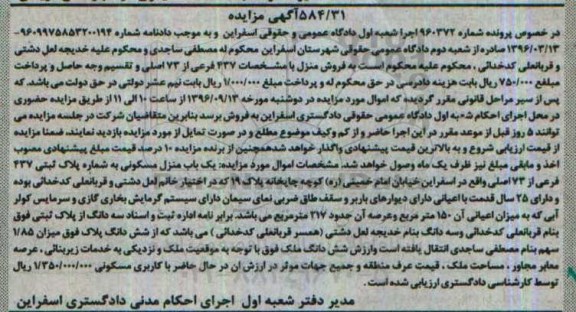 ۵۸۴/۳۱آگهی مزایده
در خصوص پرونده شماره ۹۶۰۳۷۲ اجرا شعبه اول دادگاه عمومی و حقوقی اسفراین و به موجب دادنامه شماره ۹۶۰۹۹۷۵۸۵۳۲۰۰۱۹۴-
۱۳۹۶/۰۳/۱۳ صادره از شعبه دوم دادگاه عمومی حقوقی شهرستان اسفراین محکوم له مصطفی ساجدی و محکوم علیه خدیجه لعل دشتی
و قربانعلی کدخدائی , محکوم علیه محکوم است به فروش منزل با مشخصات ۴۳۷ فرعی از ۷۳ اصلی و تقسیم وجه حاصل و پرداخت
مبلغ ۷۵۰/۰۰۰ ریال بابت هزینه دادرسی در حق محکوم له و پرداخت مبلغ ۱/۰۰۰/۰۰۰ ریال بابت نیم عشر دولتی در حق دولت می باشد. که
پس از سیر مراحل قانونی مقرر گردیده که اموال مورد مزایده در دوشنبه مورخه ۱۳۹۶/۰۹/۱۳ از ساعت ۱۰ الی ۱۱ از طریق مزایده حضوری
در محل اجرای احکام شعبه اول دادگاه عمومی حقوقی دادگستری اسفراین به فروش برسد بنابرین متقاضیان شرکت در جلسه مزایده می
توانند ۵ روز قبل از موعد مقرر در این اجرا حاضر و از کم وکیف موضوع مطلع و در صورت تمایل از مورد مزایده بازدید نمایند، ضمنا مزایده
از قیمت ارزیابی شروع و به بالاترین قیمت پیشنهادی واگذار خواهد شدهمچنین از برنده مزایده ۱۰ درصد قیمت مبلغ پیشنهادی مصوب
اخذ و مابقی مبلغ نیز ظرف یک ماه وصول خواهد شد. مشخصات اموال مورد مزایده: یک باب منزل مسکونی به شماره پلاک ثبتی ۴۳۷
فرعی از ۷۳ اصلی واقع در اسفراین خیابان امام خمینی (ره) کوچه چاپخانه پلاک ۱۹ که در اختیار خانم لعل دشتی و قربانعلی کدخدائی بوده
و دارای ۲۵ سال قدمت با اعیانی دارای دیوارهای باربر و سقف طاق ضربی نمای سیمان دارای سیستم گرمایش بخاری گازی و سرمایس کولر
آبی که به میزان اعیانی آن ۱۵۰ متر مربع وعرصه آن حدود ۲۱۷ مترمربع می باشد. برابر نامه اداره ثبت و اسناد سه دانگ از پلاک ثبتی فوق
بنام قربانعلی کدخدائی وسه دانگ بنام خدیجه لعل دشتی (همسر قربانعلی کدخدائی ) می باشد که از شش دانگ پلاک فوق میزان ۱/۸۵
سهم بنام مصطفی ساجدی انتقال یافته است وارزش شش دانگ ملک فوق با توجه به موقعیت ملک و نزدیکی به خدمات زیربنائی ، عرصه
معابر مجاور ، مساحت ملک ، قیمت عرف منطقه و جمیع جهات موثر در ارزش ان در حال حاضر با کاربری مسکونی ۱/۳۵۰/۰۰۰/۰۰۰ ریال
توسط کارشناسی دادگستری ارزیابی شده است.
مدیر دفتر شعبه اول اجرای احکام مدنی دادگستری اسفراین